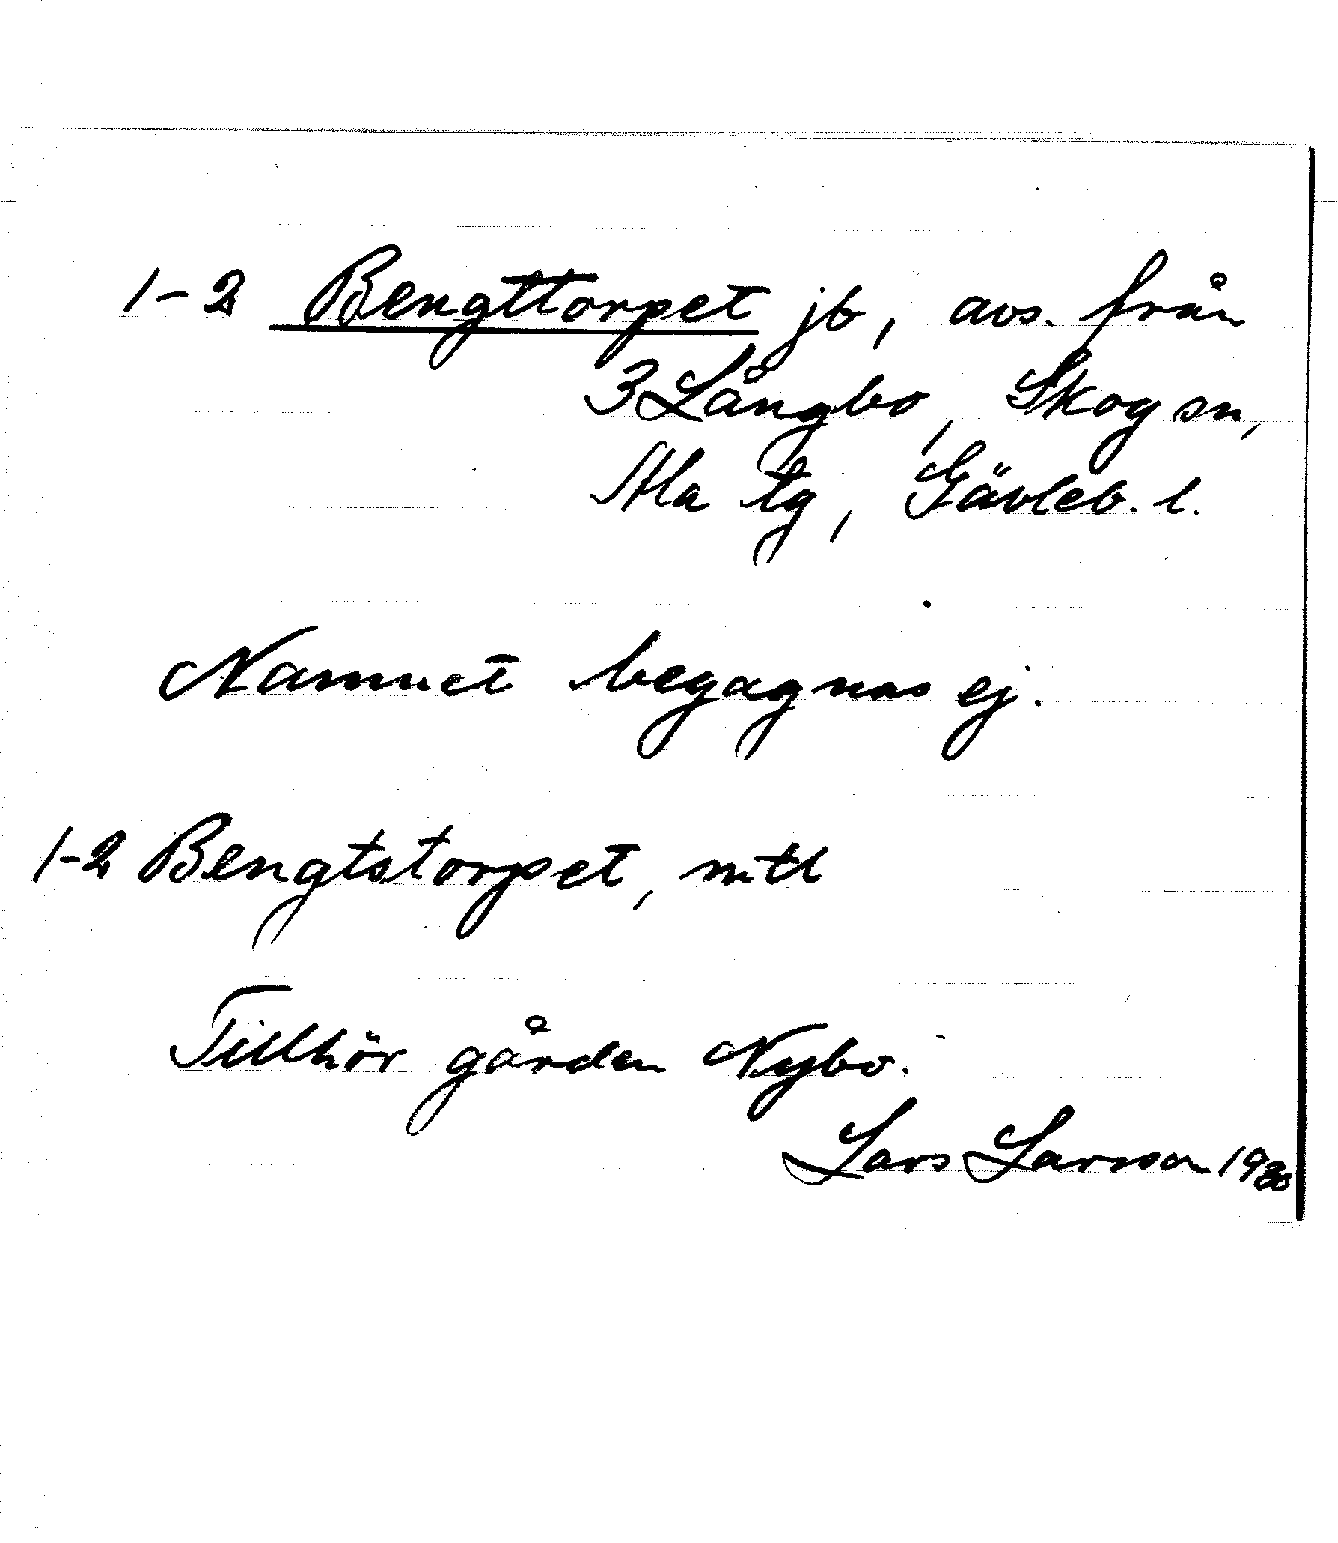 1-2 Bengttorpet jb, avs. från
3 Långbo, Skog sn,
Ala tg, Gävleb. l.
Namnet begagnas ej.
1-2 Bengtstorpet, mtl
Tillhör gården Nybo.
Lars Larsson 1930